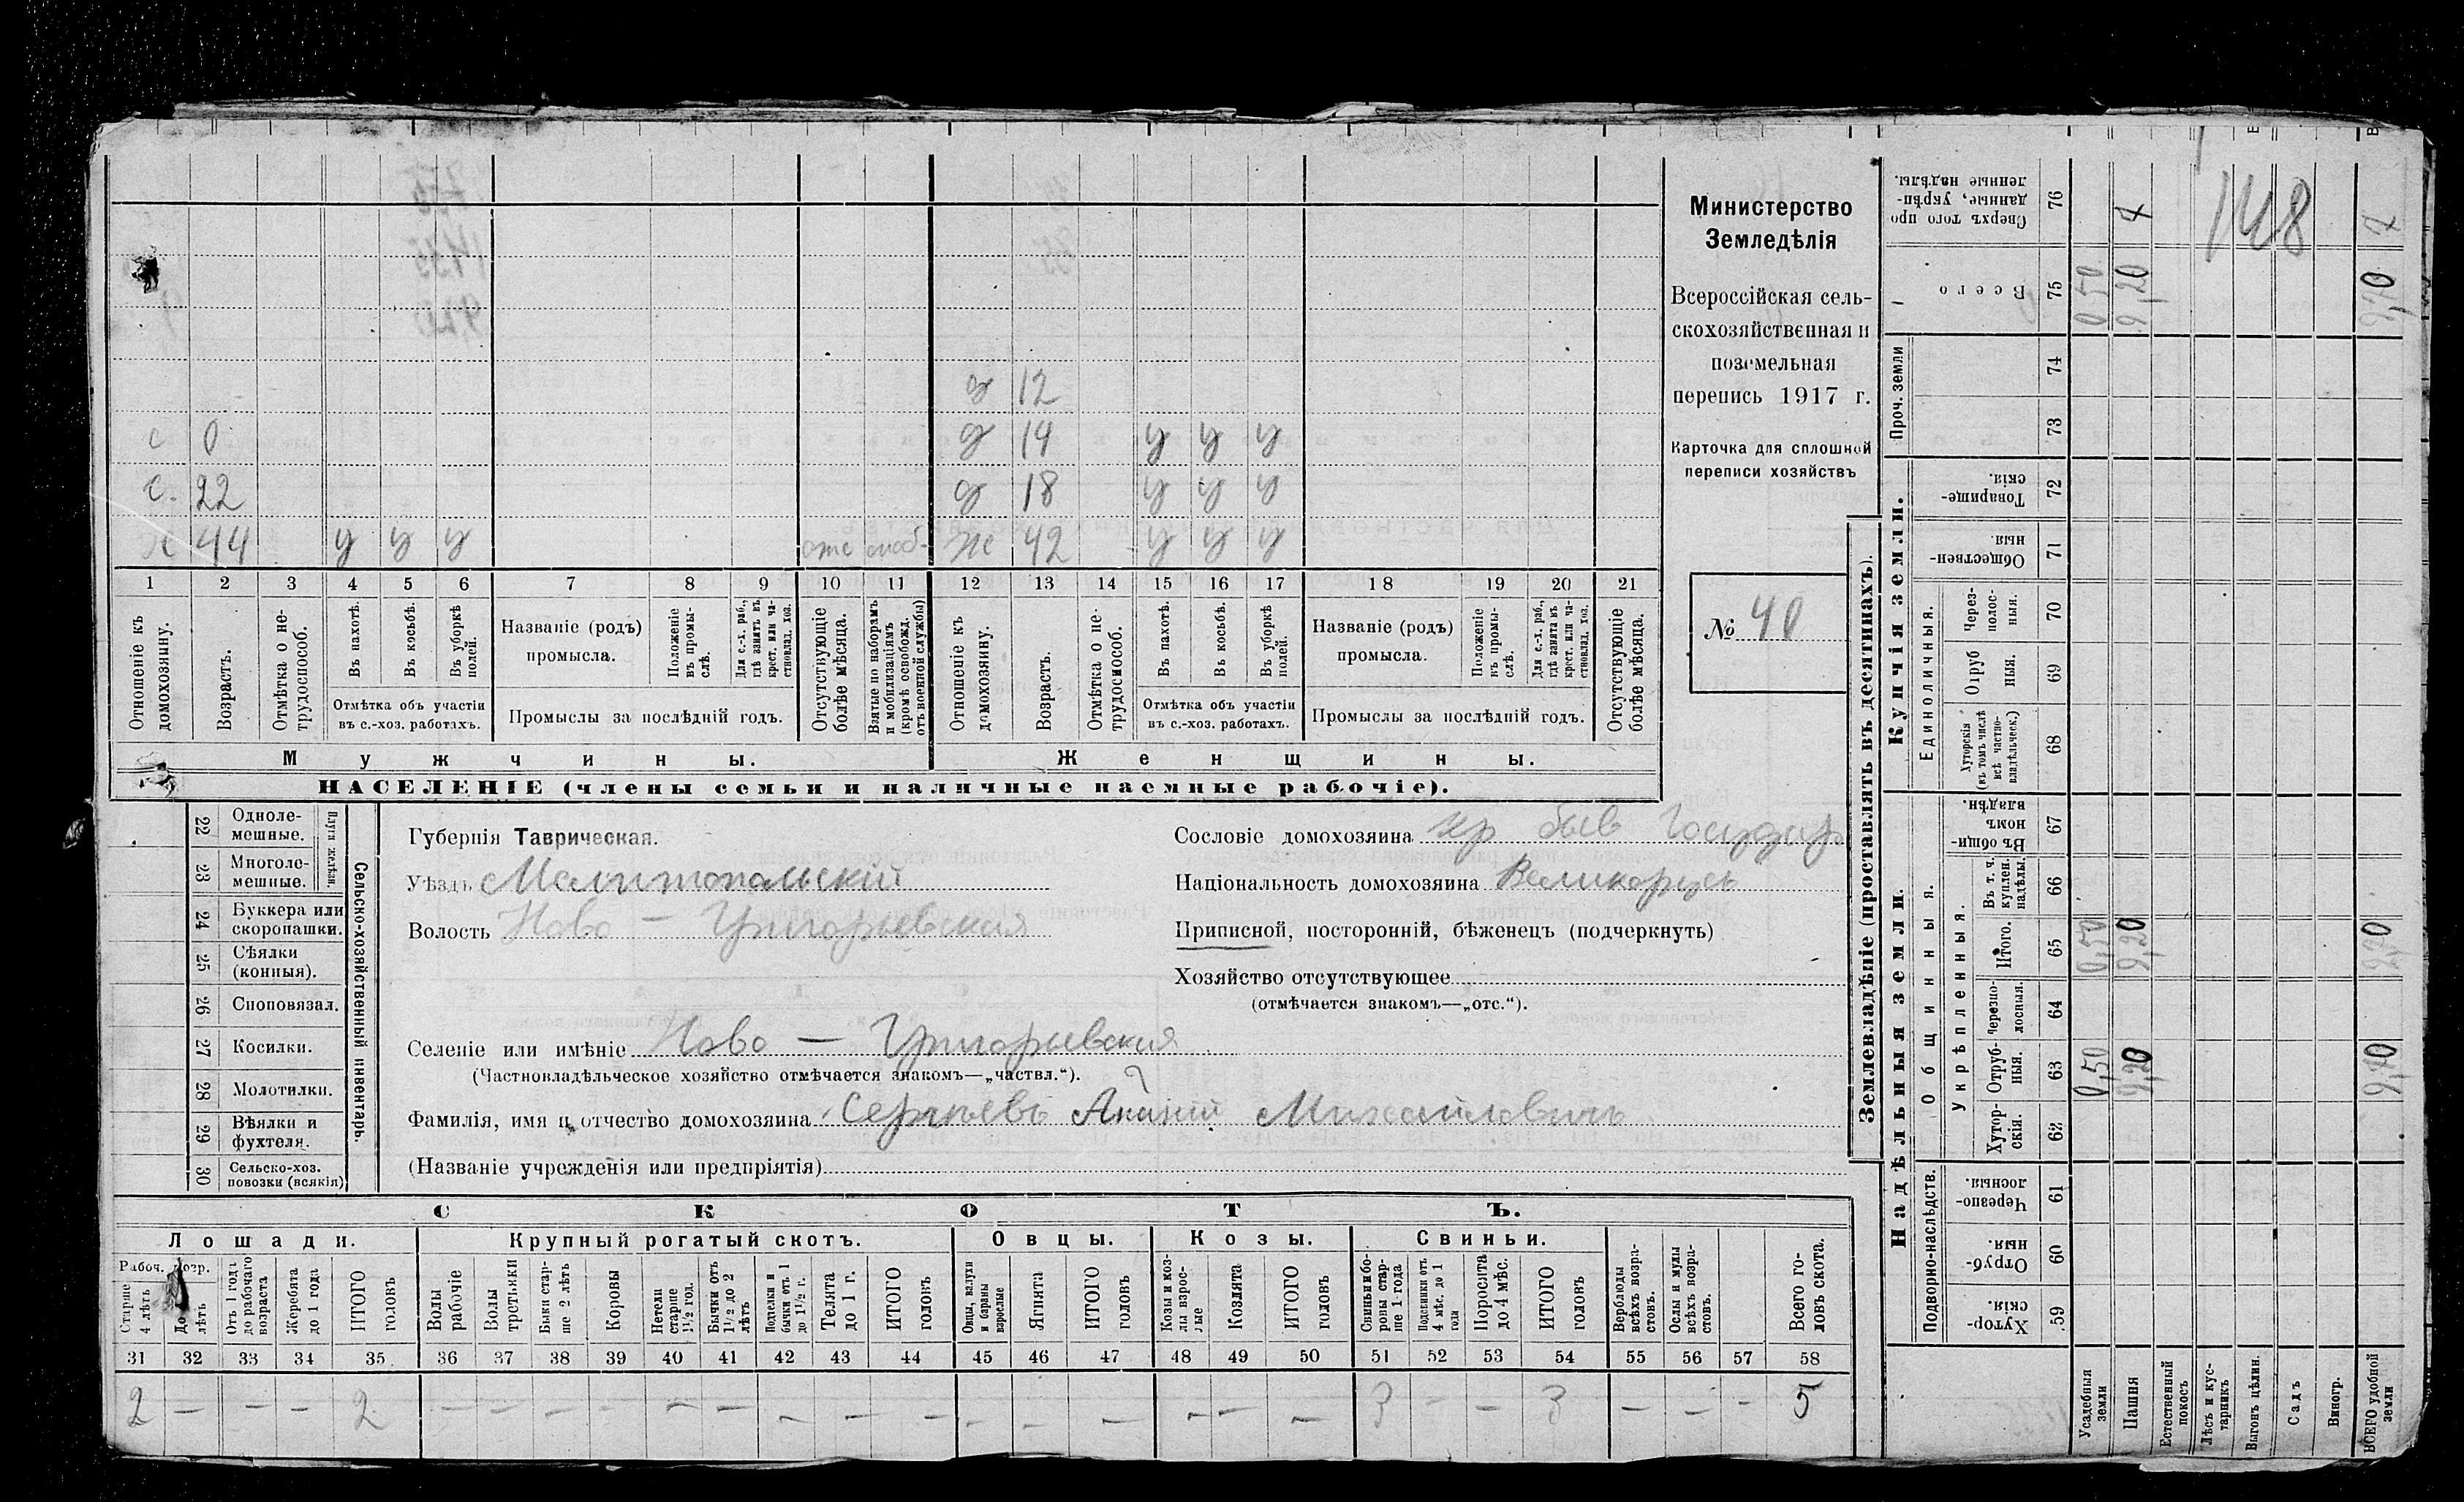 Министерство
Земледѣлія
Всероссійская сель-
скохозяйственная и
поземельная
перепись 1917 г.
Карточка для сплошной
переписи хозяйствъ
№ 40
д 12
с 0 д 14 у у у
с. 22 д 18 у у у
х 44 у у у ж 42 у у у
1 2 3 4 5 6 7 8 9 10 11 12 13 14 15 16 17 18 19 20 21
Отношеніе къ домохозяину.
Возрастъ.
Отмѣтка о не-трудоспособ.
Въ пахотѣ.
Въ косьбѣ.
Въ уборкѣ полей.
Отмѣтка объ участіи
въ с.-хоз. работахъ.
Названіе (родъ)
промысла.
Положеніе въ промы-слѣ.
Для с.-х. раб., гдѣ занятъ въ крест. или ча-стновлад. хоз.
Промыслы за послѣдній годъ.
Отсутствующіе болѣе мѣсяца.
Взятые по наборамъ и мобилизаціямъ (кромѣ освобожд. отъ военной службы)
Отношеніе къ домохозяину.
Возрастъ.
Отмѣтка о не-трудоспособ.
Въ пахотѣ.
Въ косьбѣ.
Въ уборкѣ полей.
Отмѣтка объ участіи
въ с.-хоз. работахъ.
Названіе (родъ)
промысла.
Положеніе въ промы-слѣ.
Для с.-х. раб., гдѣ занята въ крест. или ча-стновлад. хоз.
Промыслы за послѣдній годъ.
Отсутствующіе болѣе мѣсяца.
Мужчины. Женщины.
НАСЕЛЕНІЕ (члены семьи и наличные наемные рабочіе).
Сельско-хозяйственный инвентарь.
Плуги желѣзн.
22 Одноле-мешные.
23 Многоле-мешные.
24 Буккера или скоропашки.
25 Сѣялки (конныя).
26 Сноповязал.
27 Косилки.
28 Молотилки.
29 Вѣялки и фухтеля.
30 Сельско-хоз. повозки (всякія)
Губернія Таврическая.
Уѣздъ Мелитопольский
Волость Ново — Григорьевская
Сословіе домохозяина кр быв Государ
Національность домохозяина Великорусъ
Приписной, посторонній, бѣженецъ (подчеркнуть)
Хозяйство отсутствующее
(отмѣчается знакомъ—„отс.“).
Селеніе или имѣніе Ново — Григорьевская
(Частновладѣльческое хозяйство отмѣчается знакомъ—„частвл.“).
Фамилія, имя и отчество домохозяина Сергѣевъ Михайловичъ
(Названіе учрежденія или предпріятія)
СКОТЪ.
Лошади. Крупный рогатый скотъ. Овцы. Козы. Свиньи.
Рабоч. возр.
Старше 4 лѣтъ
До лѣтъ
Отъ 1 года до рабочаго возраста
Жеребята до 1 года
ИТОГО головъ
Волы рабочіе
Волы третьяки
Быки стар-ше 2 лѣтъ
Коровы
Нетели старше 1½ год.
Бычки отъ 1½ до 2 лѣтъ
Подтелки и бычки отъ 1 до 1½ г.
Телята до 1 г.
ИТОГО головъ
Овцы, валухи и бараны взрослые
Ягнята
ИТОГО головъ
Козы и коз-лы взрос-лые
Козлята
ИТОГО головъ
Свиньи и бо-ровы стар-ше 1 года
Подсвинки отъ 4 мѣс. до 1 года
Поросята до 4 мѣс.
ИТОГО головъ
Верблюды всѣхъ возра-стовъ.
Ослы и мулы всѣхъ возра-стовъ.
Всего го-ловъ скота.
31 32 33 34 35 36 37 38 39 40 41 42 43 44 45 46 47 48 49 50 51 52 53 54 55 56 57 58
2 — — — 2 — — — — — — — — — — — — — — — 3 — — 3 — — — 5
Землевладѣніе (проставлять въ десятинахъ).
148
Сверхъ того про данные, укрѣп-ленные надѣлы. 76 4
Всего 75 0,50 9,20 9,70
Проч. земли 74 73
Купчія земли.
Товарище-скія. 72
Обществен-ныя. 71
Единоличныя.
Через-полос-ныя. 70
Отруб ныя. 69
Хуторскія (въ томъ числѣ всѣ частно-владѣльческ.) 68
Надѣльныя земли.
Общинныя.
Въ общи-номъ владѣн. 67
Укрѣпленныя.
Въ т. ч. куплен. надѣлы. 66
Итого. 65 0,50 9,20 9,70
Черезпо-лосныя. 64
Отруб-ныя. 63 0,50 9,20 9,70
Хутор-скія. 62
Подворно-наслѣдств.
Черезпо-лосныя. 61
Отруб-ныя. 60
Хутор-скія. 59
Усадебныя земли
Пашня
Естественный покосъ
Лѣсъ и кус-тарникъ
Выгонъ цѣлин.
Садъ
Виногр.
ВСЕГО удобной земли